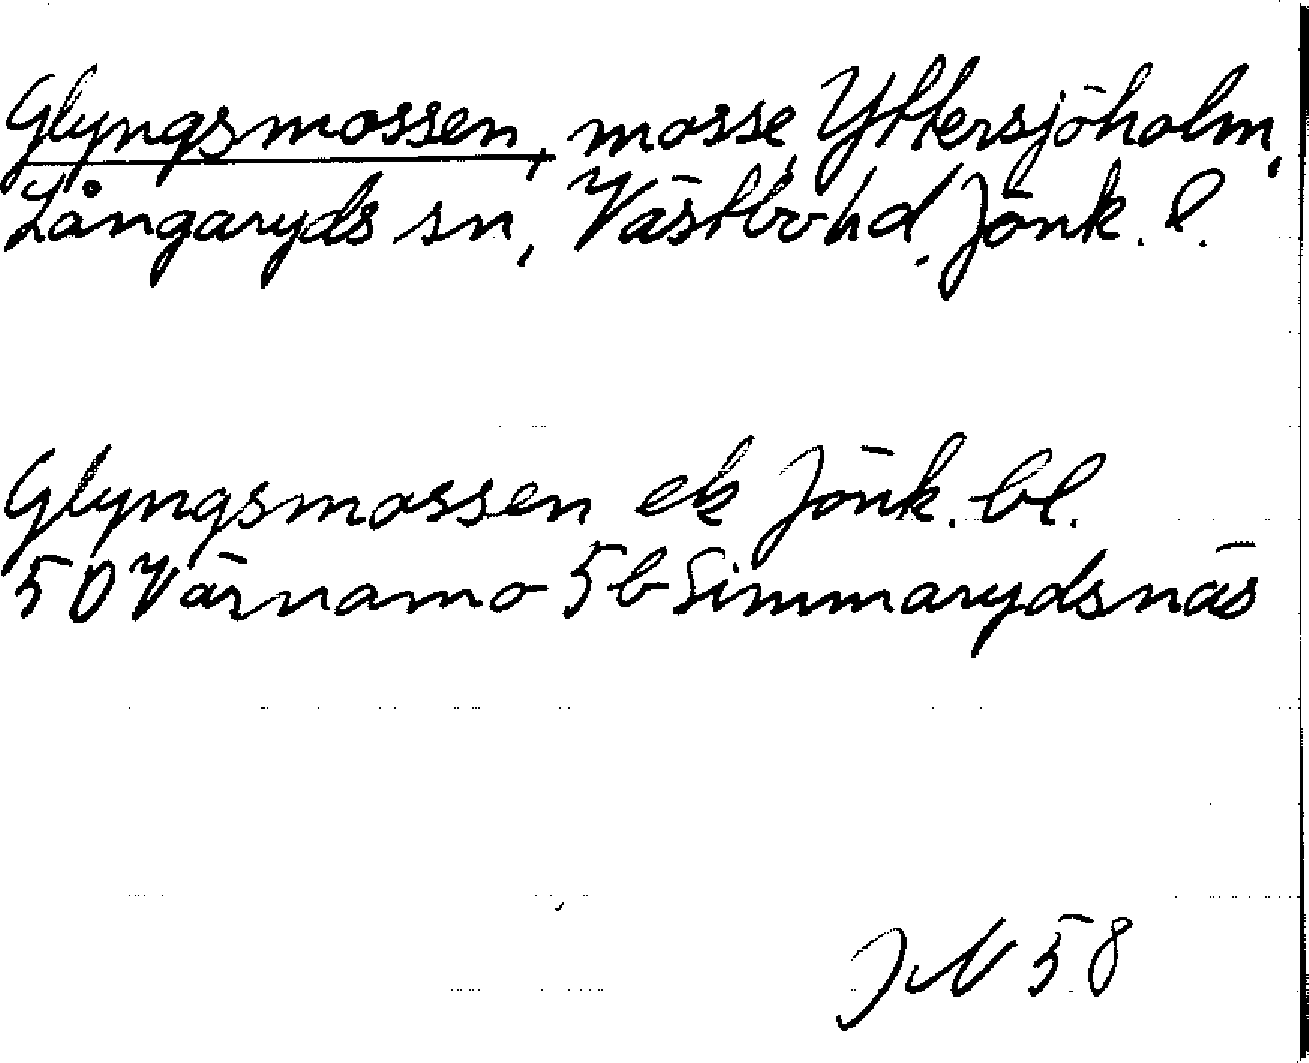 Glyngsmossen, mosse, Yttersjöholm,
Långaryds sn, Västbo hd. Jönk. l.
Glyngsmossen ek Jönk. bl.
5D Värnamo 5b Simmarydsnäs
JN 58